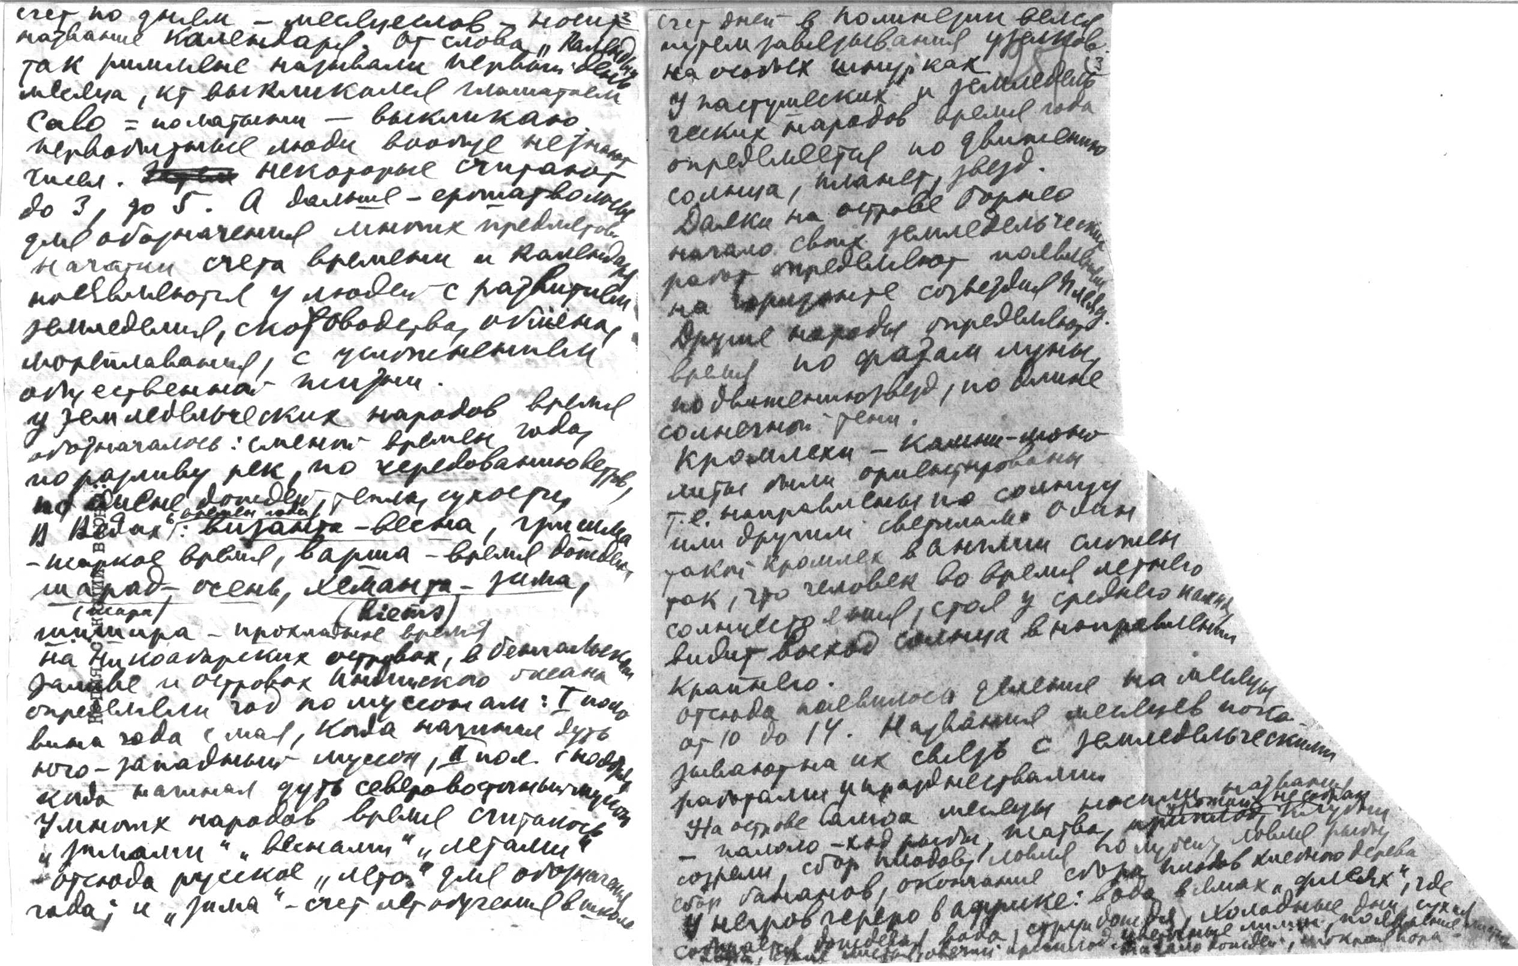 счет по дням – месяцеслов – носит
название календаря, от слова „календы
так римляне называли первый день
месяца, кт выкликался глашатаем
Calo = полатыни – выкликаю
первобытные люди вообще не знают
чисел. некоторые считают
до 3, до 5. А дальше –
для обозначения многих предметов
начатки счета времени и календаря
появляются у людей с развитием
земледелия, скотоводства, обмена,
мореплавания, с усложнением
общественной жизни.
у земледельческих народов время
обозначалось: сменой времен года,
по разливу рек, по чередованию ветров,
по смене дождей, тепла, сухости,
времен года
В Ведах: – весна, гришма
– жаркое время, варша – время дождей,
шарад – осень, хеманта – зима,
(жара) (hiems)
шишира – прохладное время
на Никобарских островах, в бенгальском
заливе и островах индийского океана
определяли год по муссонам: I поло
вина года с мая, когда начинал дуть
юго-западный муссон, II пол. с ноября,
когда начинал дуть северовосточный муссон
У многих народов время считалось
„зимами“ „веснами“ „летами“
отсюда русское „лето“ для обозначения
года; и „зима“ – счет лет обучения в школе
счет дней в Полинезии велся
путем завязывания узелков
на особых шнурках
3
У пастушеских и земледель
ческих народов время года
определяется по движению
солнца, планет, звезд.
Даяки на острове Борнео
начало своих земледельческих
работ определяют появлением
на горизонте созвездия Плеяд.
Другие народы определяют
время по фазам луны,
по движению звезд, по длине
солнечной тени.
Кромлехи – камни-моно
литы были ориентированы
т.е. направлены по солнцу
или другим светилам. Один
такой кромлех в Англии сложен
так, что человек во время летнего
солнцестояния, стоя у среднего камня,
видит восход солнца в направлении
крайнего.
отсюда появилось деление на месяцы
от 10 до 14. Названия месяцев пока-
зывают на их связь с земледельческими
работами и празднествами
На острове Самоа месяцы носили названия
– палоло – ход рыбы, жатва,
созрели, сбор плодов, ловля голубей, ловля рыбы
сбор бананов, окончание сбора плодов хлебного дерева
У негров гереро в африке: вода в ямах „флеях“, где
дождевая вода, струи дождя, холодные дни, сухая
начало дождей, мокрая пора